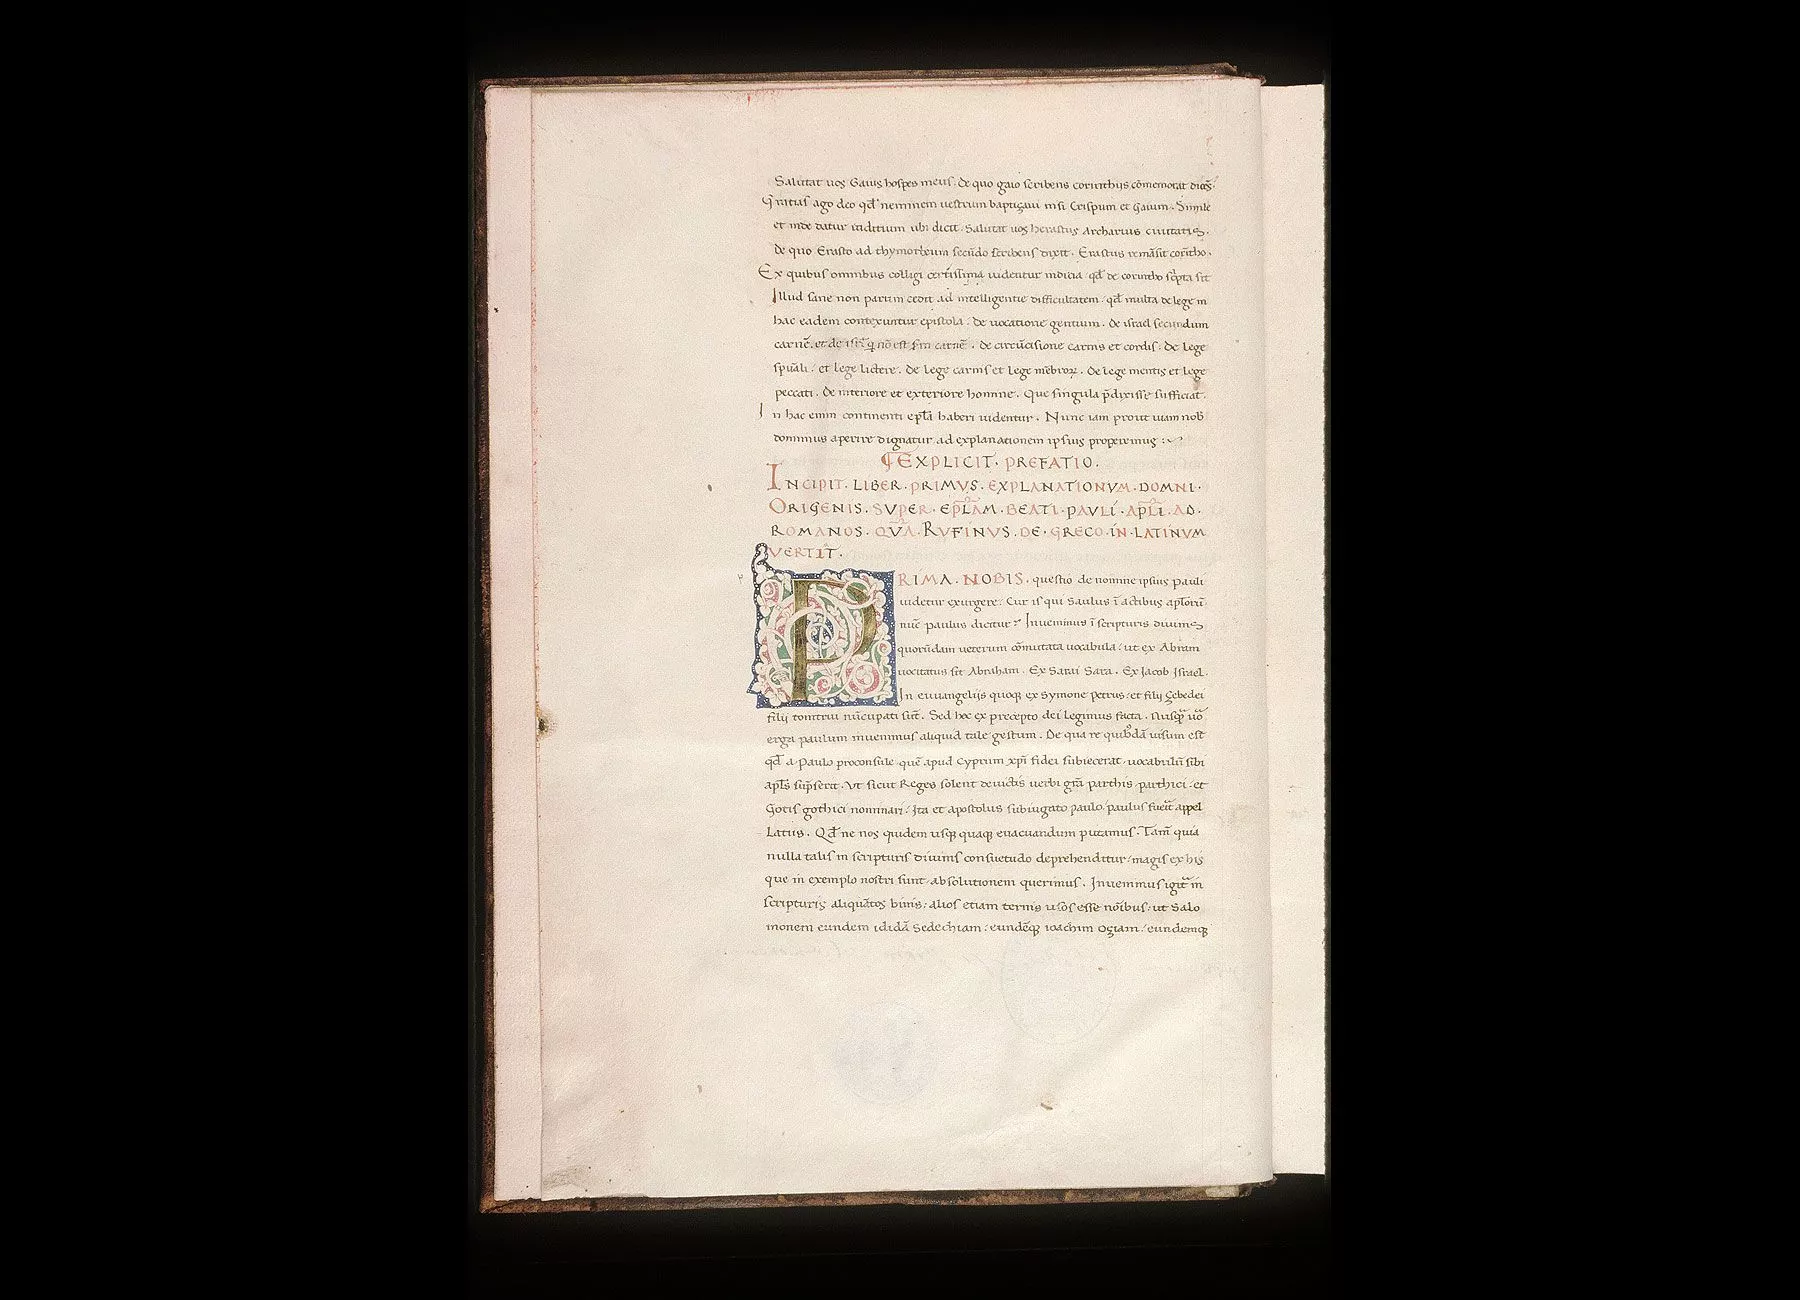 Salutat uos Gaius hospes meus. de quo gaio scribens corinthiis cōmemorat dicēs.
Gratias ago deo qđ neminem uestrum baptizaui nisi Crispum et Gaium. Simile
et inde datur inditium ubi dicit. Salutat uos herastus Archarius ciuitatis.
de quo Erasto ad thymotheum secūdo scribens dixit. Erastus remāsit corītho.
Ex quibus omnibus colligi certissima uidentur indicia qđ de corintho sc̄pta sit
Illud sane non parum cedit ad intelligentie difficultatem. qđ multa de lege in
hac eadem contexuntur epistola. de uocatione gentium. de israel secundum
carnē. et de isrł q̄ nō est sm̄ carnē. de circūcisione carnis et cordis. de lege
spūali. et lege lictere. de lege carnis et lege mēbroꝝ. de lege mentis et lege
peccati. de interiore et exteriore homine. Que singula p̄dixisse sufficiat.
In hac enim continenti epłā haberi uidentur. Nunc iam prout uiam nob
dominus aperire dignatur ad explanationem ipsius properemus :~
¶EXPLICIT. PREFATIO.
INCIPIT. LIBER. PRIMVS. EXPLANATIONVM. DOMNI.
ORIGENIS. SVPER. EPL̄AM. BEATI. PAVLI. APL̄I. AD.
ROMANOS. QVĀ. RVFINVS. DE. GRECO. IN. LATINVM
VERTIT.
PRIMA. NOBIS. questio de nomine ipsius Pauli
uidetur exurgere. Cur is qui Saulus ī actibus apłorū
nūc Paulus dicitur? Inuenimus ī scripturis diuinis
quorūdam ueterum cōmutata uocabula: ut ex Abram
uocitatus sit Abraham. Ex Sarai Sara. Ex Jacob Israel.
In euuangelijs quoqꝫ ex Symone Petrus: et filij Zebedei
filij tonitrui nūcupati sūt. Sed hoc ex precepto dei legimus facta. Nusqꝫ uō
erga paulum inuenimus aliquid tale gestum. De qua re quibᵒdā uisum est
qđ a Paulo proconsule quē apud Cyprum xp̄i fidei subiecerat uocabulū sibi
apłs sūpserit. Vt sicut Reges solent deuictis uerbi gr̄a parthis parthici: et
Gotis gothici nominari. Ita et apostolus subiugato paulo, paulus fuerit appel
Latus. Qđ ne nos quidem usqꝫ quaqꝫ euacuandum putamus. Tam̄ quia
nulla talis in scripturis diuinis consuetudo deprehenditur magis ex his
que in exemplo nostri sunt absolutionem querimus. Inuenimus igit̄ in
scripturis aliquātos binis: alios etiam ternis usos esse noībus: ut Salo
monem eundem ididā Sedechiam: eundēqꝫ ioachim Oziam: eundemqꝫ